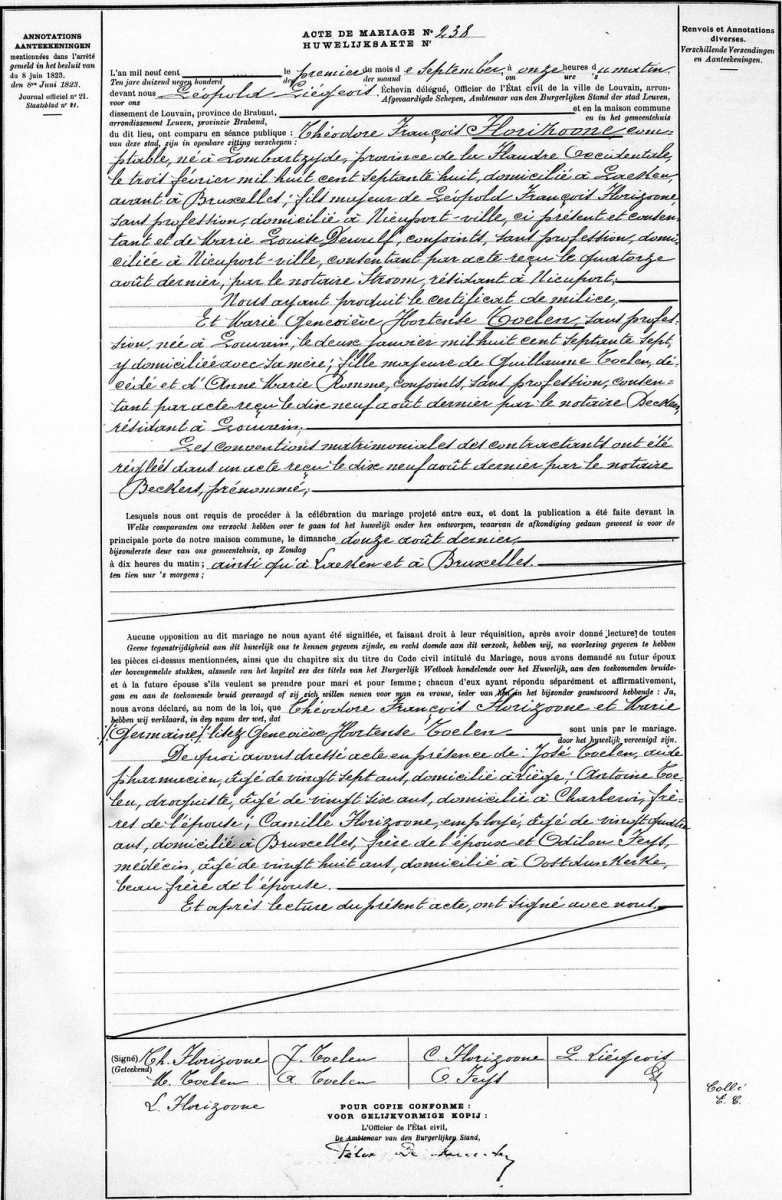 ANNOTATIONS
AANTEEKENINGEN
mentionnées dans l'arrêté
gemeld in het besluit van
du 8 juin 1823.
den 8en Juni 1823.
Journal officiel n° 21.
Staatsblad n° 21.
ACTE DE MARIAGE N° 238
HUWELIJKSAKTE N°
Renvois et Annotations
diverses.
Verschillende Verzendingen
en Aanteekeningen.
L'an mil neuf cent le premier du mois de Septembre à onze heures du matin
Ten jare duizend negen honderd den der maand om ure 's
devant nous Léopold Liégeois Échevin délégué, Officier de l'État civil de la ville de Louvain, arron-
voor ons Afgevaardigde Schepen, Ambtenaar van den Burgerlijken Stand der stad Leuven,
dissement de Louvain, province de Brabant, et en la maison commune
arrondissement Leuven, provincie Braband, en in het gemeentehuis
du dit lieu, ont comparu en séance publique : Théodore François Florizoone com-
van deze stad, zijn in openbare zitting verschepen :
ptable, né à Lombartzyde, province de la Flandre Occidentale,
le trois février mil huit cent septante huit, domicilié à Laeken,
avant à Bruxelles; fils majeur de Léopold François Florizoone,
sans profession, domicilié à Nieuport-ville, ci présent et consen-
tant et de Marie Louise Dewulf, conjoints, sans profession, domi-
ciliée à Nieuport-ville, consentant par acte reçu le quatorze
août dernier, par le notaire Stroom, résidant à Nieuport;
Nous ayant produit le certificat de milice,
Et Marie Geneviève Hortense Toelen, sans profes-
sion, née à Louvain, le deux janvier mil huit cent septante sept,
y domiciliée avec sa mère; fille majeure de Guillaume Toelen, dé-
cédé et d'Anne Marie Romme, conjoints, sans profession, consen-
tant par acte reçu le dix neuf août dernier par le notaire Beckers,
résidant à Louvain;
Les conventions matrimoniales des contractants ont été
réglées dans un acte reçu le dix neuf août dernier par le notaire
Beckers, prénommé;
Lesquels nous ont requis de procéder à la célébration du mariage projeté entre eux, et dont la publication a été faite devant la
Welke comparanten ons verzocht hebben over te gaan tot het huwelijk onder hen ontworpen, waarvan de afkondiging gedaan geweest is voor de
principale porte de notre maison commune, le dimanche douze août dernier
bijzonderste deur van ons gemeentehuis, op Zondag
à dix heures du matin; ainsi qu'à Laeken et à Bruxelles.
ten tien uur 's morgens;
Aucune opposition au dit mariage ne nous ayant été signifiée, et faisant droit à leur réquisition, après avoir donné lecture de toutes
Geene tegenstrijdigheid aan dit huwelijk ons te kennen gegeven zijnde, en recht doende aan dit verzoek, hebben wij, na voorlezing gegeven te hebben
les pièces ci-dessus mentionnées, ainsi que du chapitre six du titre du Code civil intitulé du Mariage, nous avons demandé au futur époux
der bovengemelde stukken, alsmede van het kapitel zes des titels van het Burgerlijk Wetboek handelende over het Huwelijk, aan den toekomenden bruide-
et à la future épouse s'ils veulent se prendre pour mari et pour femme; chacun d'eux ayant répondu séparément et affirmativement,
gom en aan de toekomende bruid gevraagd of zij zich willen nemen voor man en vrouw, ieder van hen in het bijzonder geantwoord hebbende : Ja,
nous avons déclaré, au nom de la loi, que Théodore François Florizoone et Marie
hebben wij verklaard, in den naam der wet, dat
(Germaine) lisez Geneviève Hortense Toelen sont unis par le mariage.
door het huwelijk vereenigd zijn.
De quoi avons dressé acte en présence de : José Toelen, aide
pharmacien, âgé de vingt sept ans, domicilié à Liège; Antoine Toe-
len, droguiste, âgé de vingt six ans, domicilié à Charleroi, frè-
res de l'épouse; Camille Florizoone, employé, âgé de vingt quatre
ans, domicilié à Bruxelles, frère de l'épouse et Odilon Feys,
médecin, âgé de vingt huit ans, domicilié à Oostduinkerke,
beau frère de l'épouse.
Et après lecture du présent acte, ont signé avec nous.
(Signé) Th. Florizoone J. Toelen C. Florizoone L. Liégeois
(Geteekend) M. Toelen A. Toelen O. Feys
L. Florizoone
Collé
E. E.
POUR COPIE CONFORME :
VOOR GELIJKVORMIGE KOPIJ :
L'Officier de l'État civil,
De Ambtenaar van den Burgerlijken Stand,